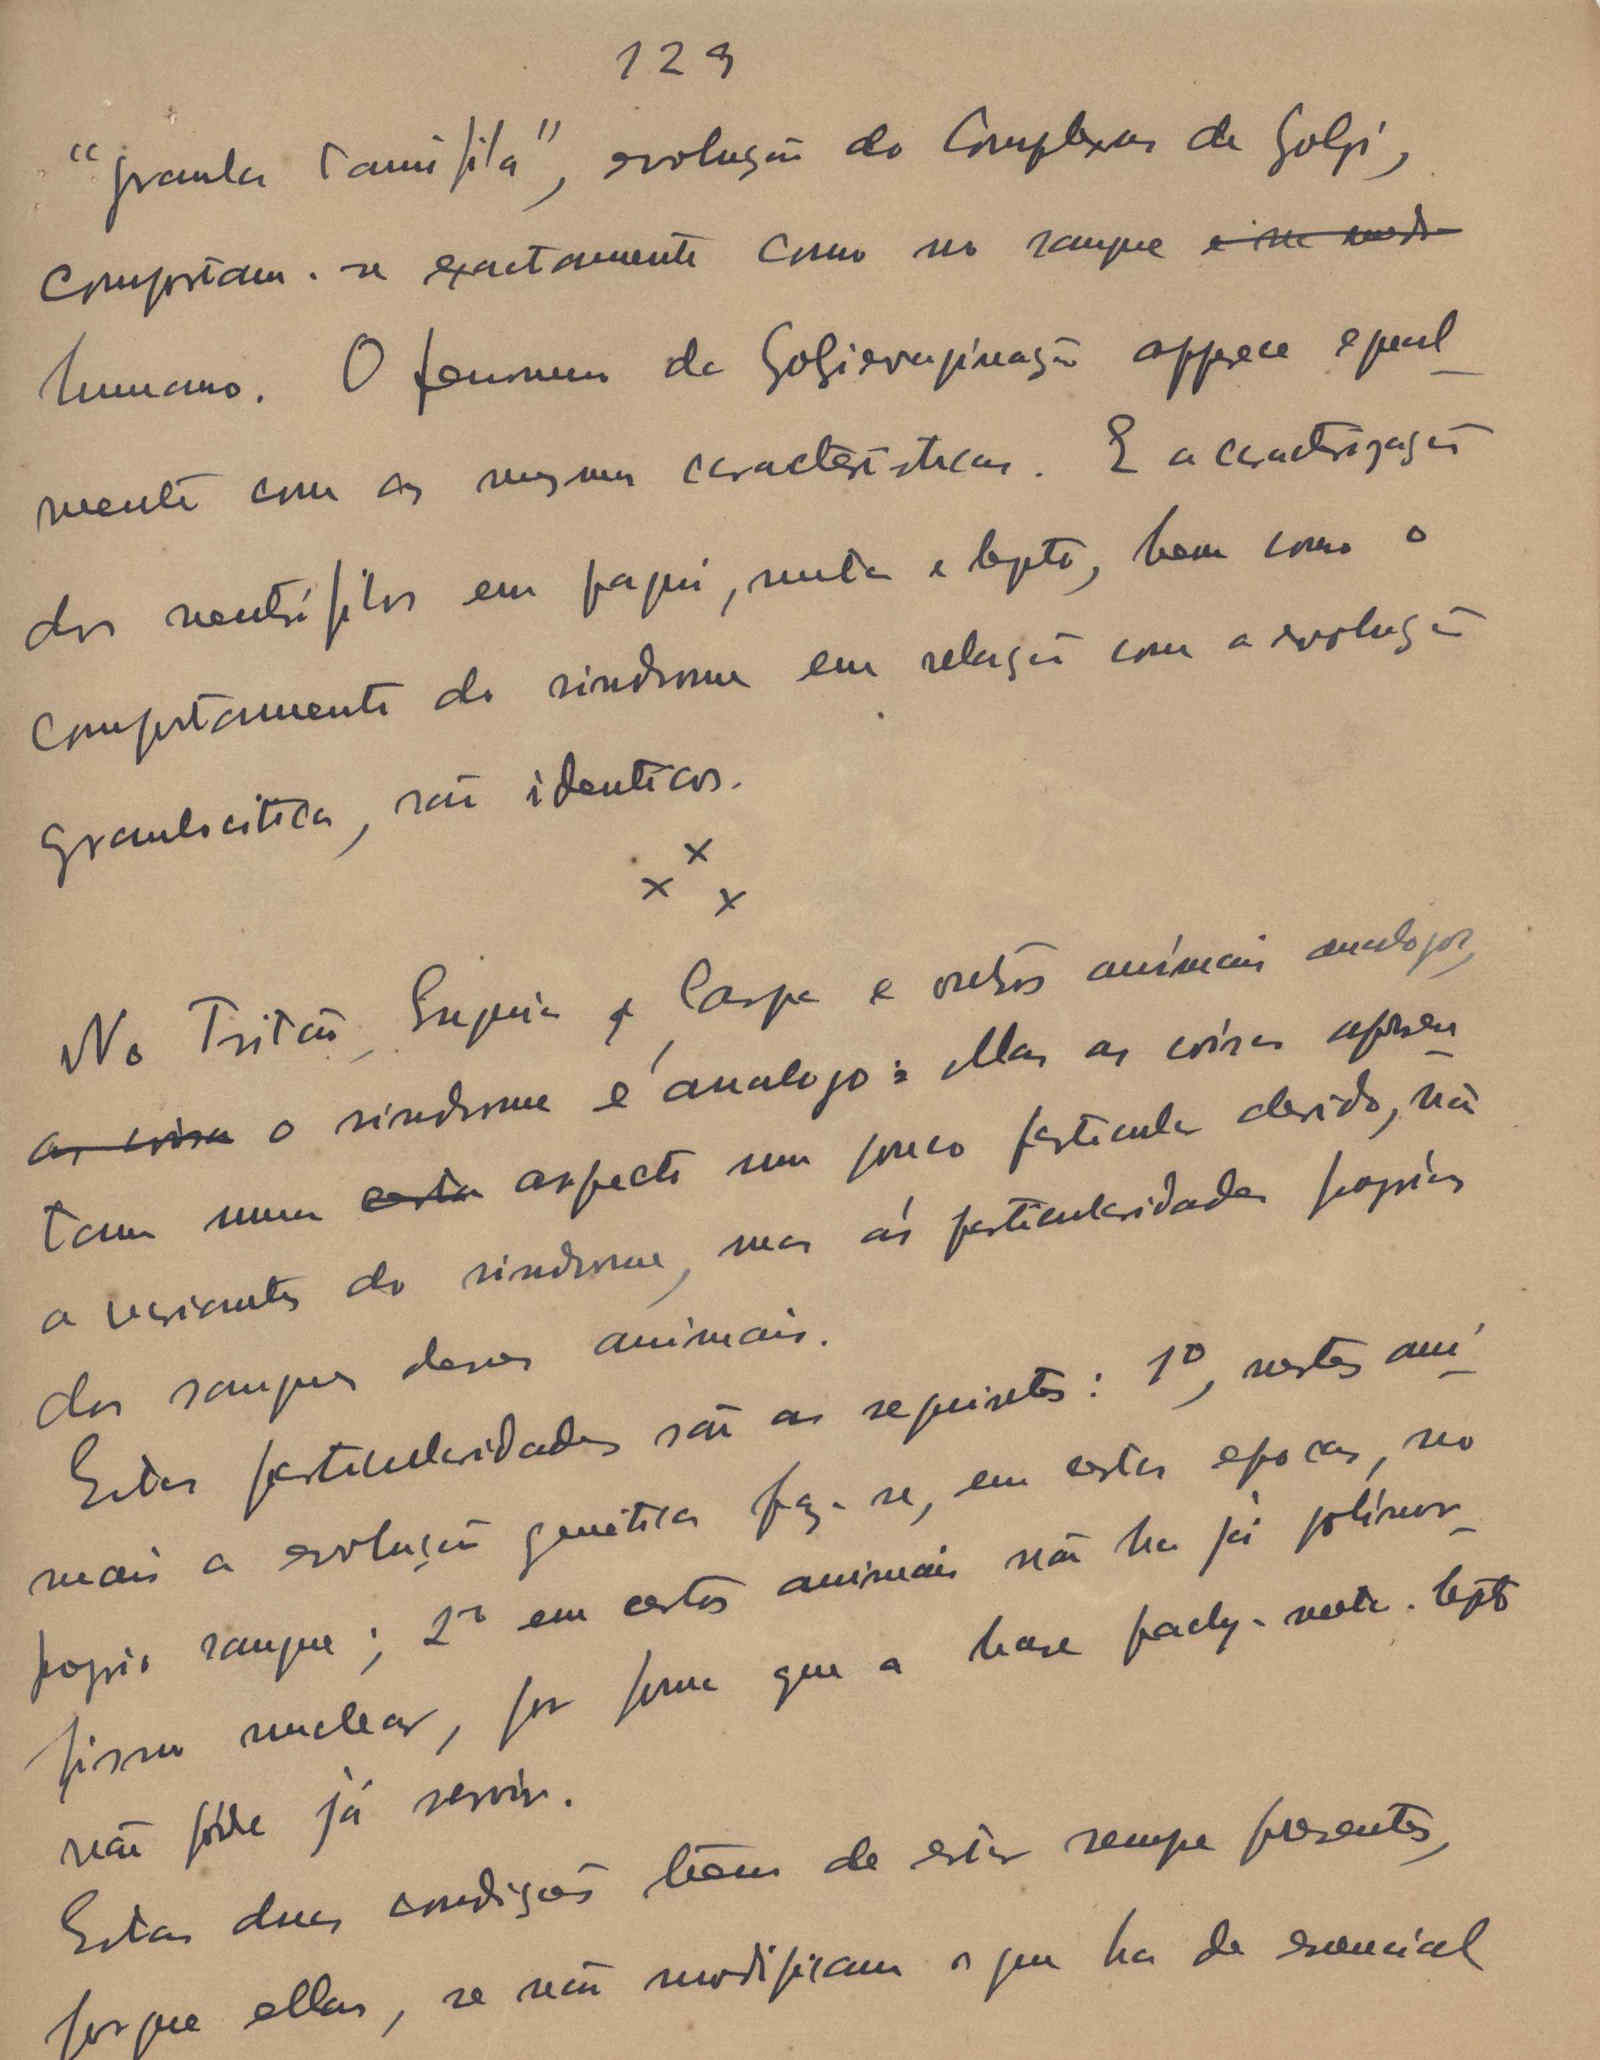 129
"granula tanifila", evolução do Complexos de Golgi,
comportam-se exactamente como no sangue e na medu
humano. O fenomeno da Golgievaginação apprece egual_
mente com as mesmas caracteristicas. E a caracterização
dos neutrófilos em paqui, meta e lepto, bem como o
comportamento do sindrome em relação com a evolução
granulocitica, são identicos.
x
x x
No Tritão, Enguia, Carpa e outros animais analogos,
as coisa o sindrome é analogo: Mas as coisas apresen_
tam num certa aspecto um pouco particular devido, não
a variantes do sindrome, mas ás particularidades proprias
dos sangues desses animais.
Estas particularidades são as seguintes: 1º, nestes ani_
mais a evolução genética faz-se, em certas epocas, no
proprio sangue; 2º em certos animais não ha já polimor_
fismo nuclear, por forma que a base pachy-meta-lepto
não póde já servir.
Estas duas condições têem de estar sempre presentes,
porque ellas, se não modificam o que ha de esencial